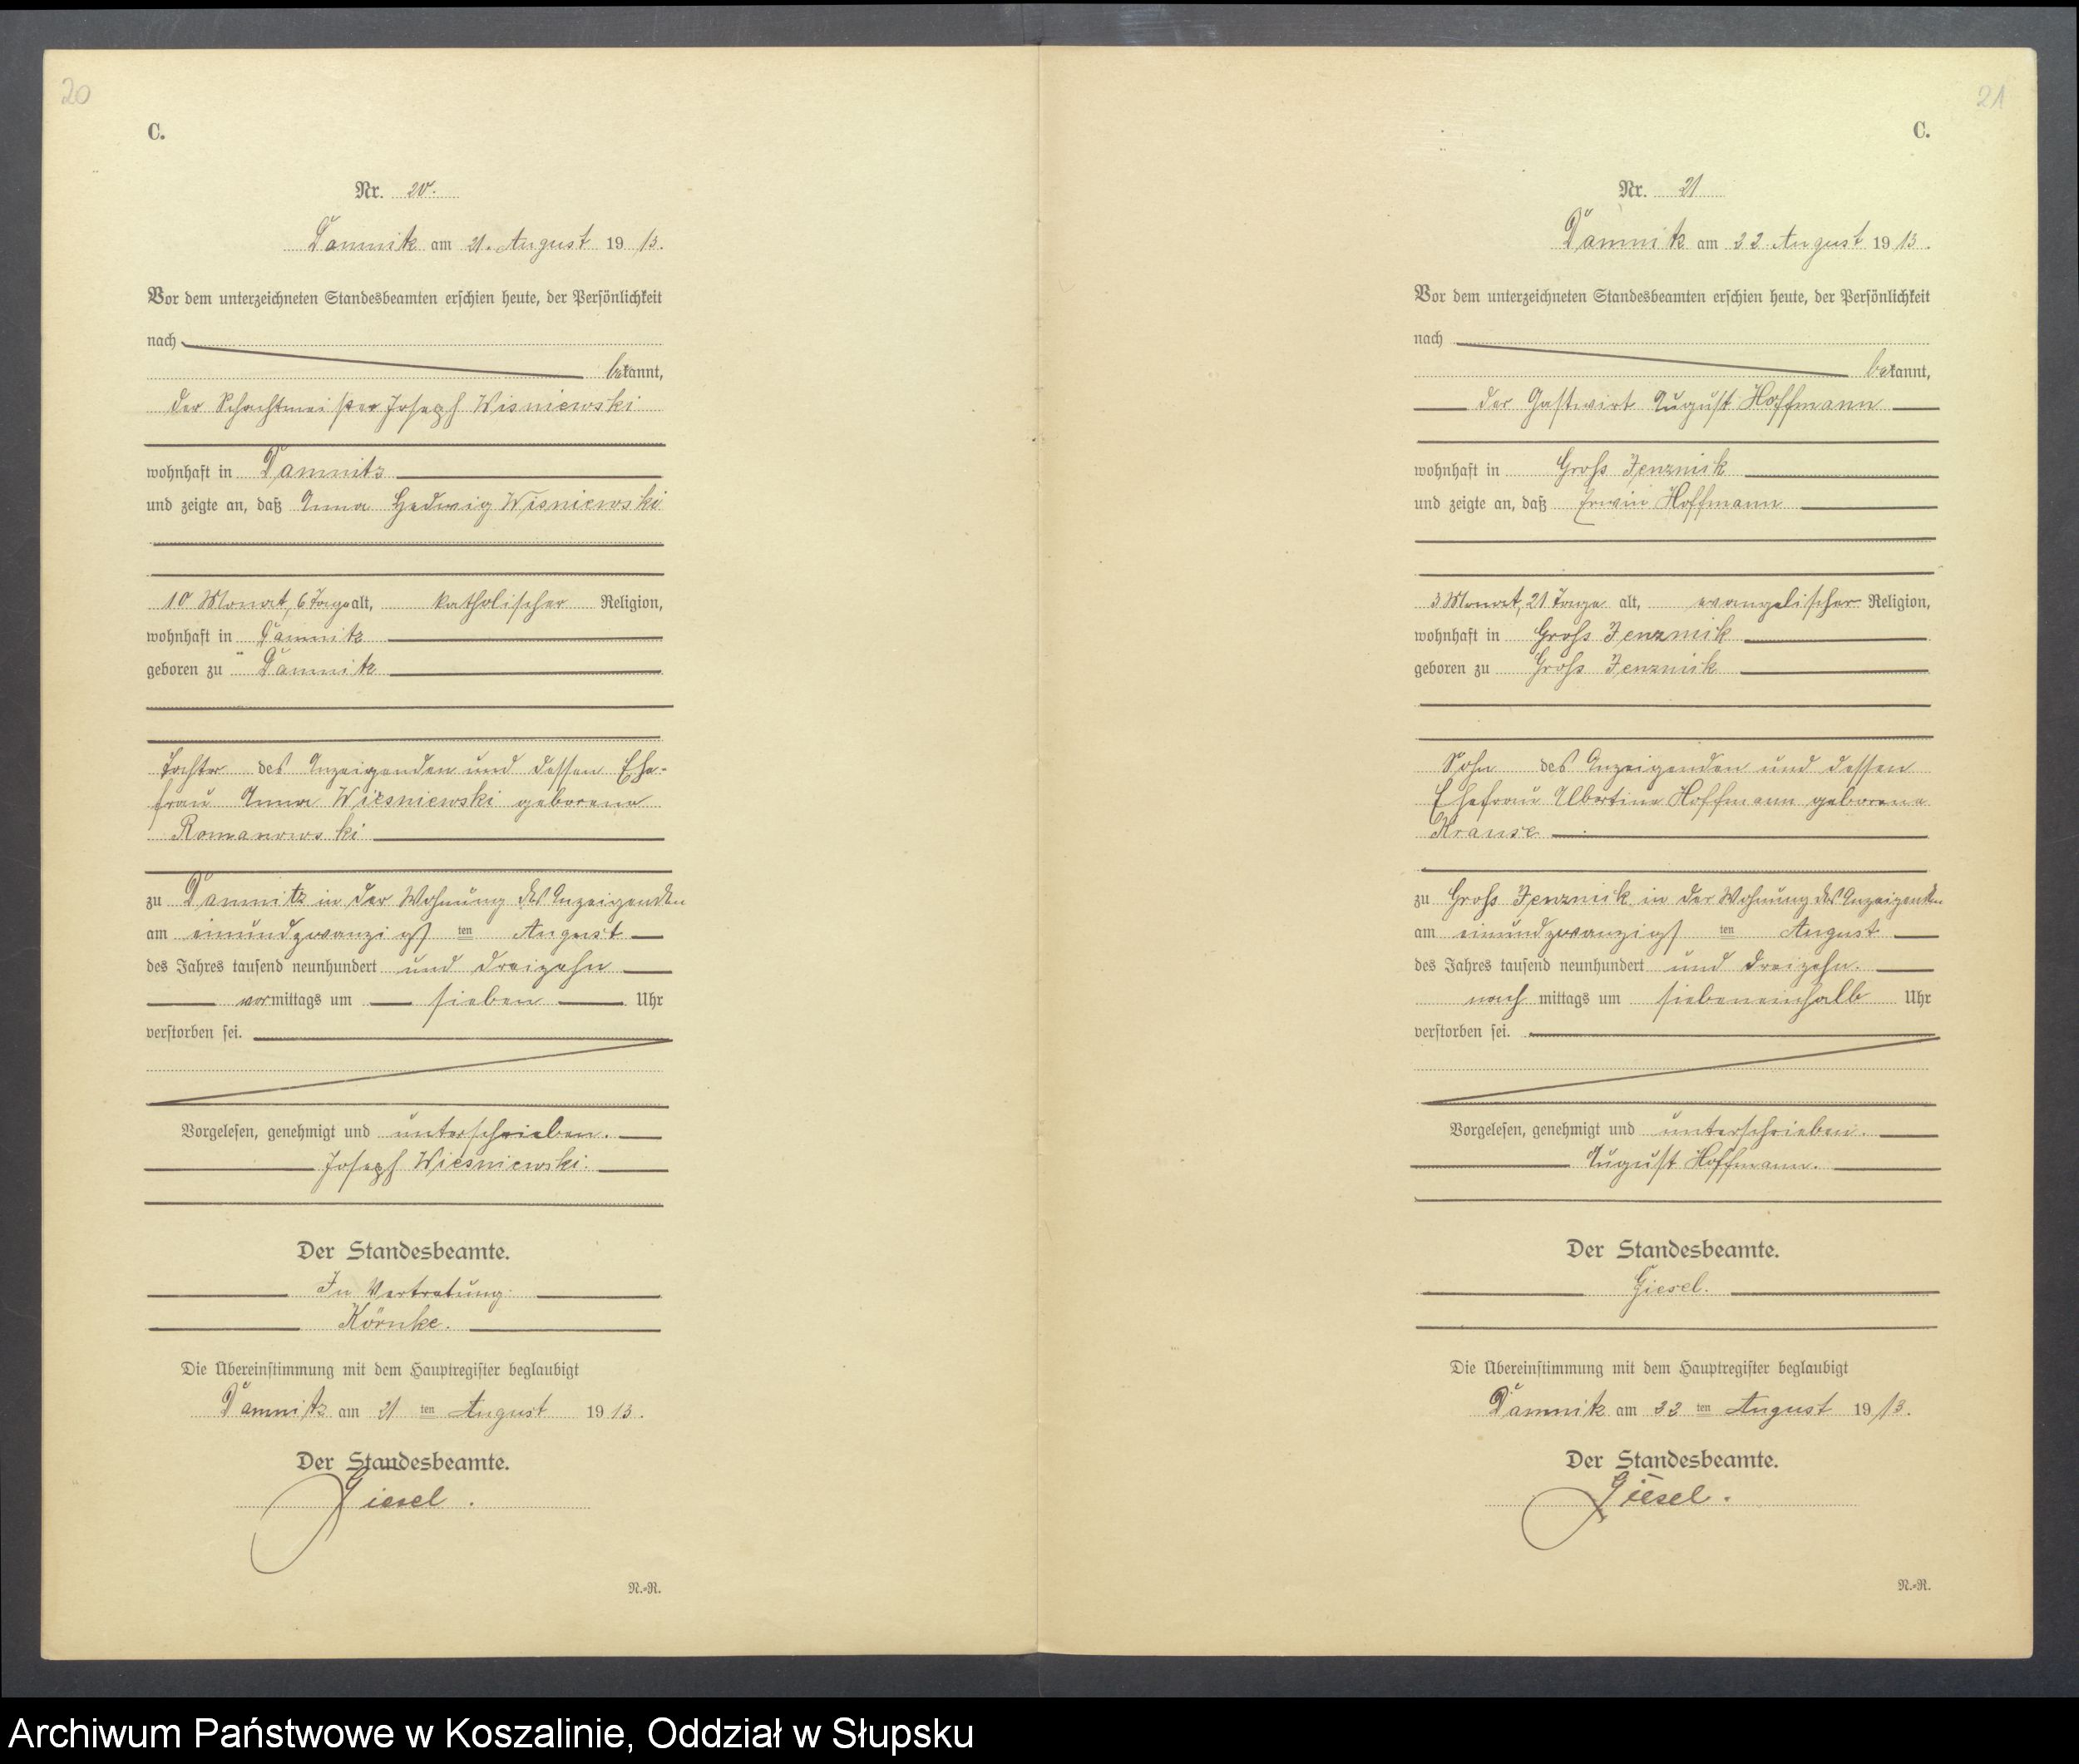 20
C.
Nr. 20.
Damnitz am 21. August 1913.
Vor dem unterzeichneten Standesbeamten erschien heute, der Persönlichkeit
nach
bekannt,
der Schachtmeister Joseph Wisniewski
wohnhaft in Damnitz
und zeigte an, daß Anna Hedwig Wisniewski
10 Monat, 6 Tage alt, katholischer Religion,
wohnhaft in Damnitz
geboren zu Damnitz
Tochter des Anzeigenden und dessen Ehe-
frau Anna Wiesniewski geborene
Romanowski
zu Damnitz in der Wohnung des Anzeigenden
am einundzwanzigsten August
des Jahres tausend neunhundert und dreizehn
vormittags um sieben Uhr
verstorben sei.
Vorgelesen, genehmigt und unterschrieben.
Joseph Wiesniewski.
Der Standesbeamte.
In Vertretung
Körnke.
Die Übereinstimmung mit dem Hauptregister beglaubigt
Damnitz am 21 ten August 1913.
Der Standesbeamte.
Giesel.
N.-R.
21
C.
Nr. 21
Damnitz am 22. August 1913.
Vor dem unterzeichneten Standesbeamten erschien heute, der Persönlichkeit
nach
bekannt,
der Gastwirt August Hoffmann
wohnhaft in Groß Jenznick
und zeigte an, daß Erwin Hoffmann
3 Monat, 21 Tage alt, evangelischer Religion,
wohnhaft in Groß Jenznick
geboren zu Groß Jenznick
Sohn des Anzeigenden und dessen
Ehefrau Albertine Hoffmann geborene
Krause
zu Groß Jenznick in der Wohnung des Anzeigenden
am einundzwanzigsten August
des Jahres tausend neunhundert und dreizehn.
nach mittags um siebeneinhalb Uhr
verstorben sei.
Vorgelesen, genehmigt und unterschrieben.
August Hoffmann.
Der Standesbeamte.
Giesel.
Die Übereinstimmung mit dem Hauptregister beglaubigt
Damnitz am 22 ten August 1913.
Der Standesbeamte.
Giesel.
N.-R.
Archiwum Państwowe w Koszalinie, Oddział w Słupsku